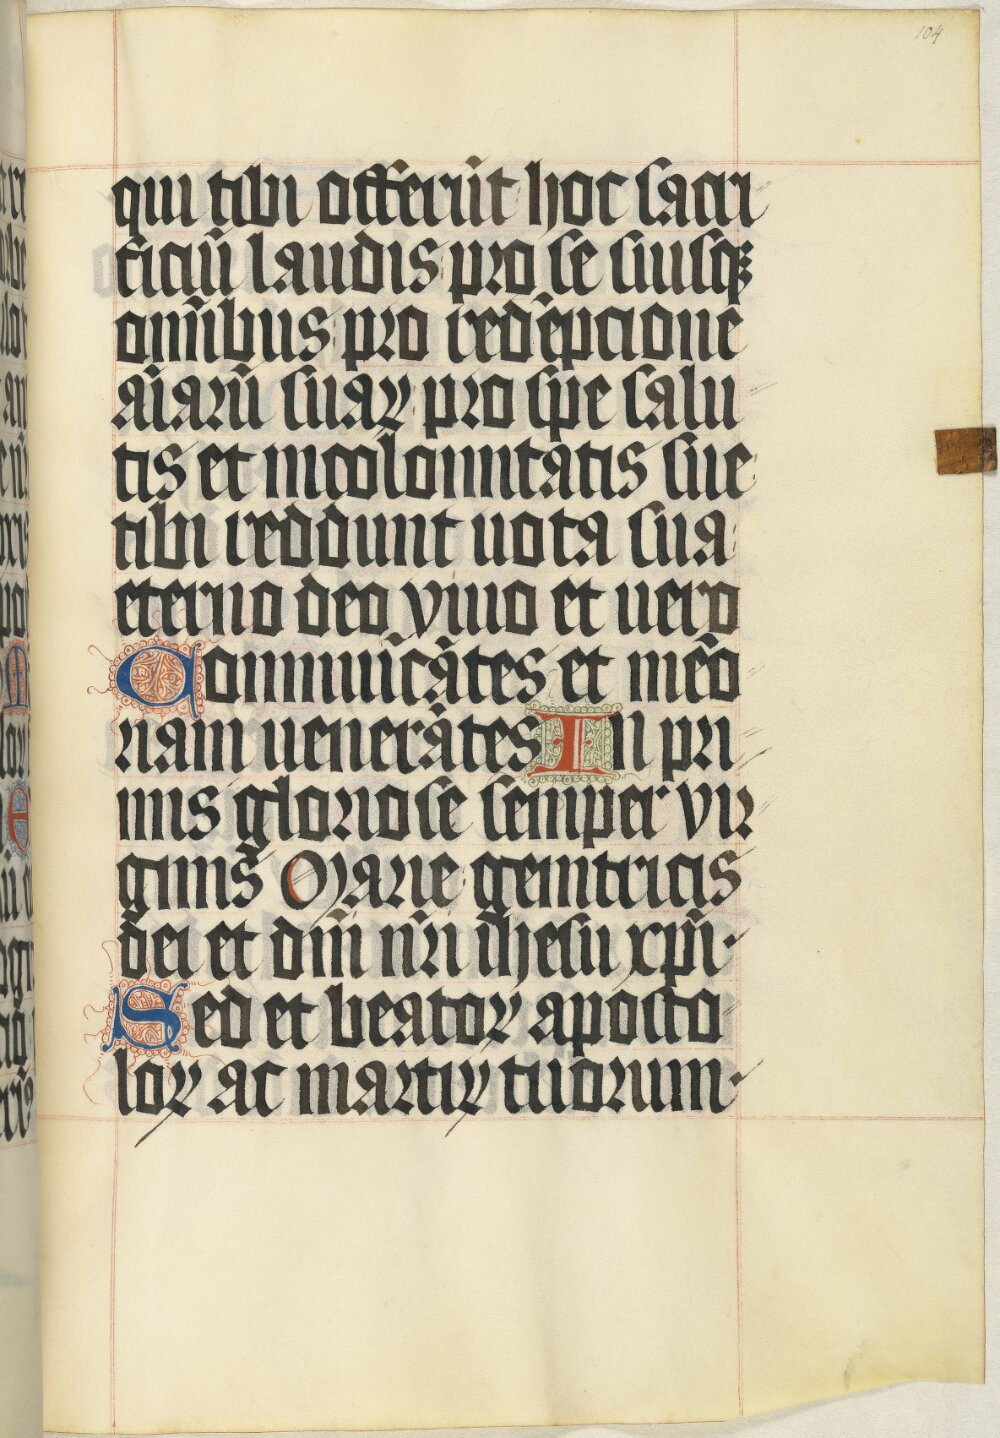 104
qui tibi offerūt hoc sacri
ficiū laudis pro se suisqꝫ
omībus pro redēpcione
aīarū suaꝝ pro spe salu
tis et incolomitatis sue
tibi reddunt uota sua
eterno deo viuo et uero
Commuīcātes et mēo
riam uenerātes In pri
mis gloriose semper vir
ginis Marie genitricis
dei et dn̄i nr̄i ihesu xp̄i·
Sed et beatoꝝ aposto
loꝝ ac martiꝝ tuorum·